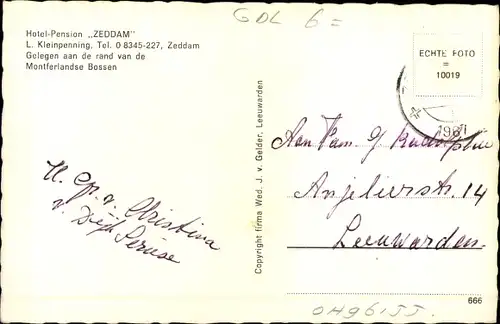 GDL 6=
Hotel-Pension „ZEDDAM"
L. Kleinpenning. Tel. 0-8345-227, Zeddam
Gelegen aan de rand van de
Montferlandse Bossen
ECHTE FOTO
=
10019
Copyright firma Wed. J. v. Gelder, Leeuwarden
Aan Fam
Anjelierstr. 14
Leeuwarden
Christina
v.
666
OH961JJ